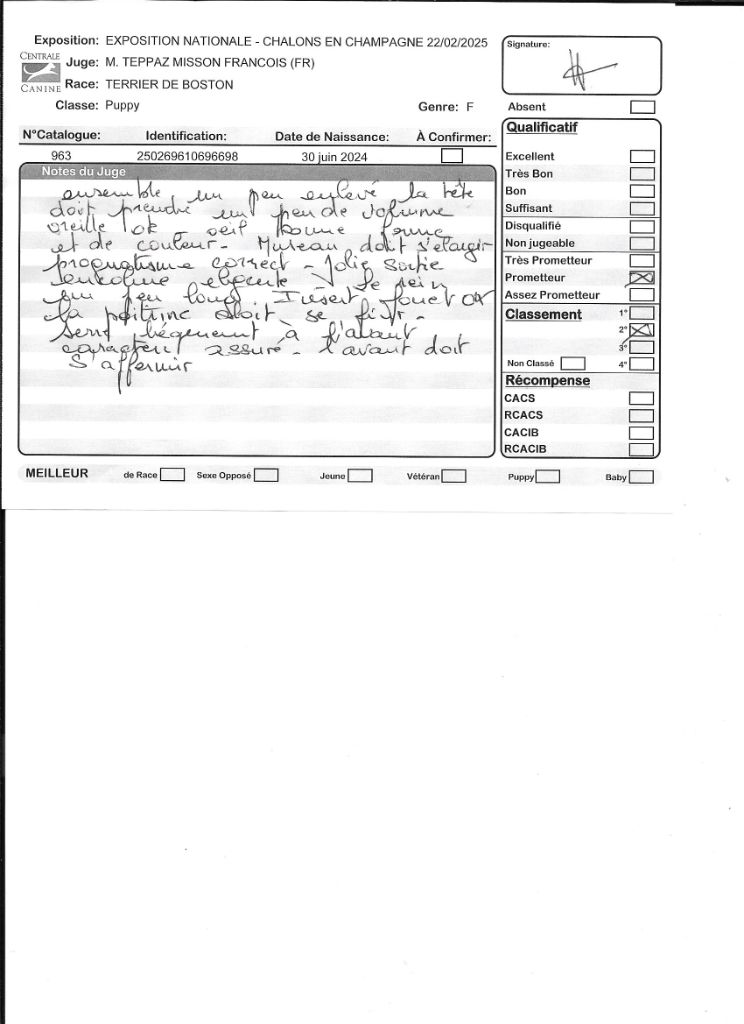 Exposition: EXPOSITION NATIONALE - CHALONS EN CHAMPAGNE 22/02/2025
CENTRALE
CANINE
Juge: M. TEPPAZ MISSON FRANCOIS (FR)
Race: TERRIER DE BOSTON
Classe: Puppy Genre: F
N°Catalogue: Identification: Date de Naissance: À Confirmer:
963 250269610696698 30 juin 2024
Notes du Juge
ensemble un peu enlevé la tête
doit prendre un peu de volume
oreille ok - oeil bonne forme
et de couleur - Museau doit s'élargir
prognatisme correct - Jolie sortie
encolure élégante - le rein
un peu long. fouet ok
la poitrine doit se finir -
serré légèrement à l'avant
caractère assuré - l'avant doit
s'affermir
Signature:
Absent
Qualificatif
Excellent
Très Bon
Bon
Suffisant
Disqualifié
Non jugeable
Très Prometteur
Prometteur
Assez Prometteur
Classement 1°
2°
3°
Non Classé 4°
Récompense
CACS
RCACS
CACIB
RCACIB
MEILLEUR de Race Sexe Opposé Jeune Vétéran Puppy Baby